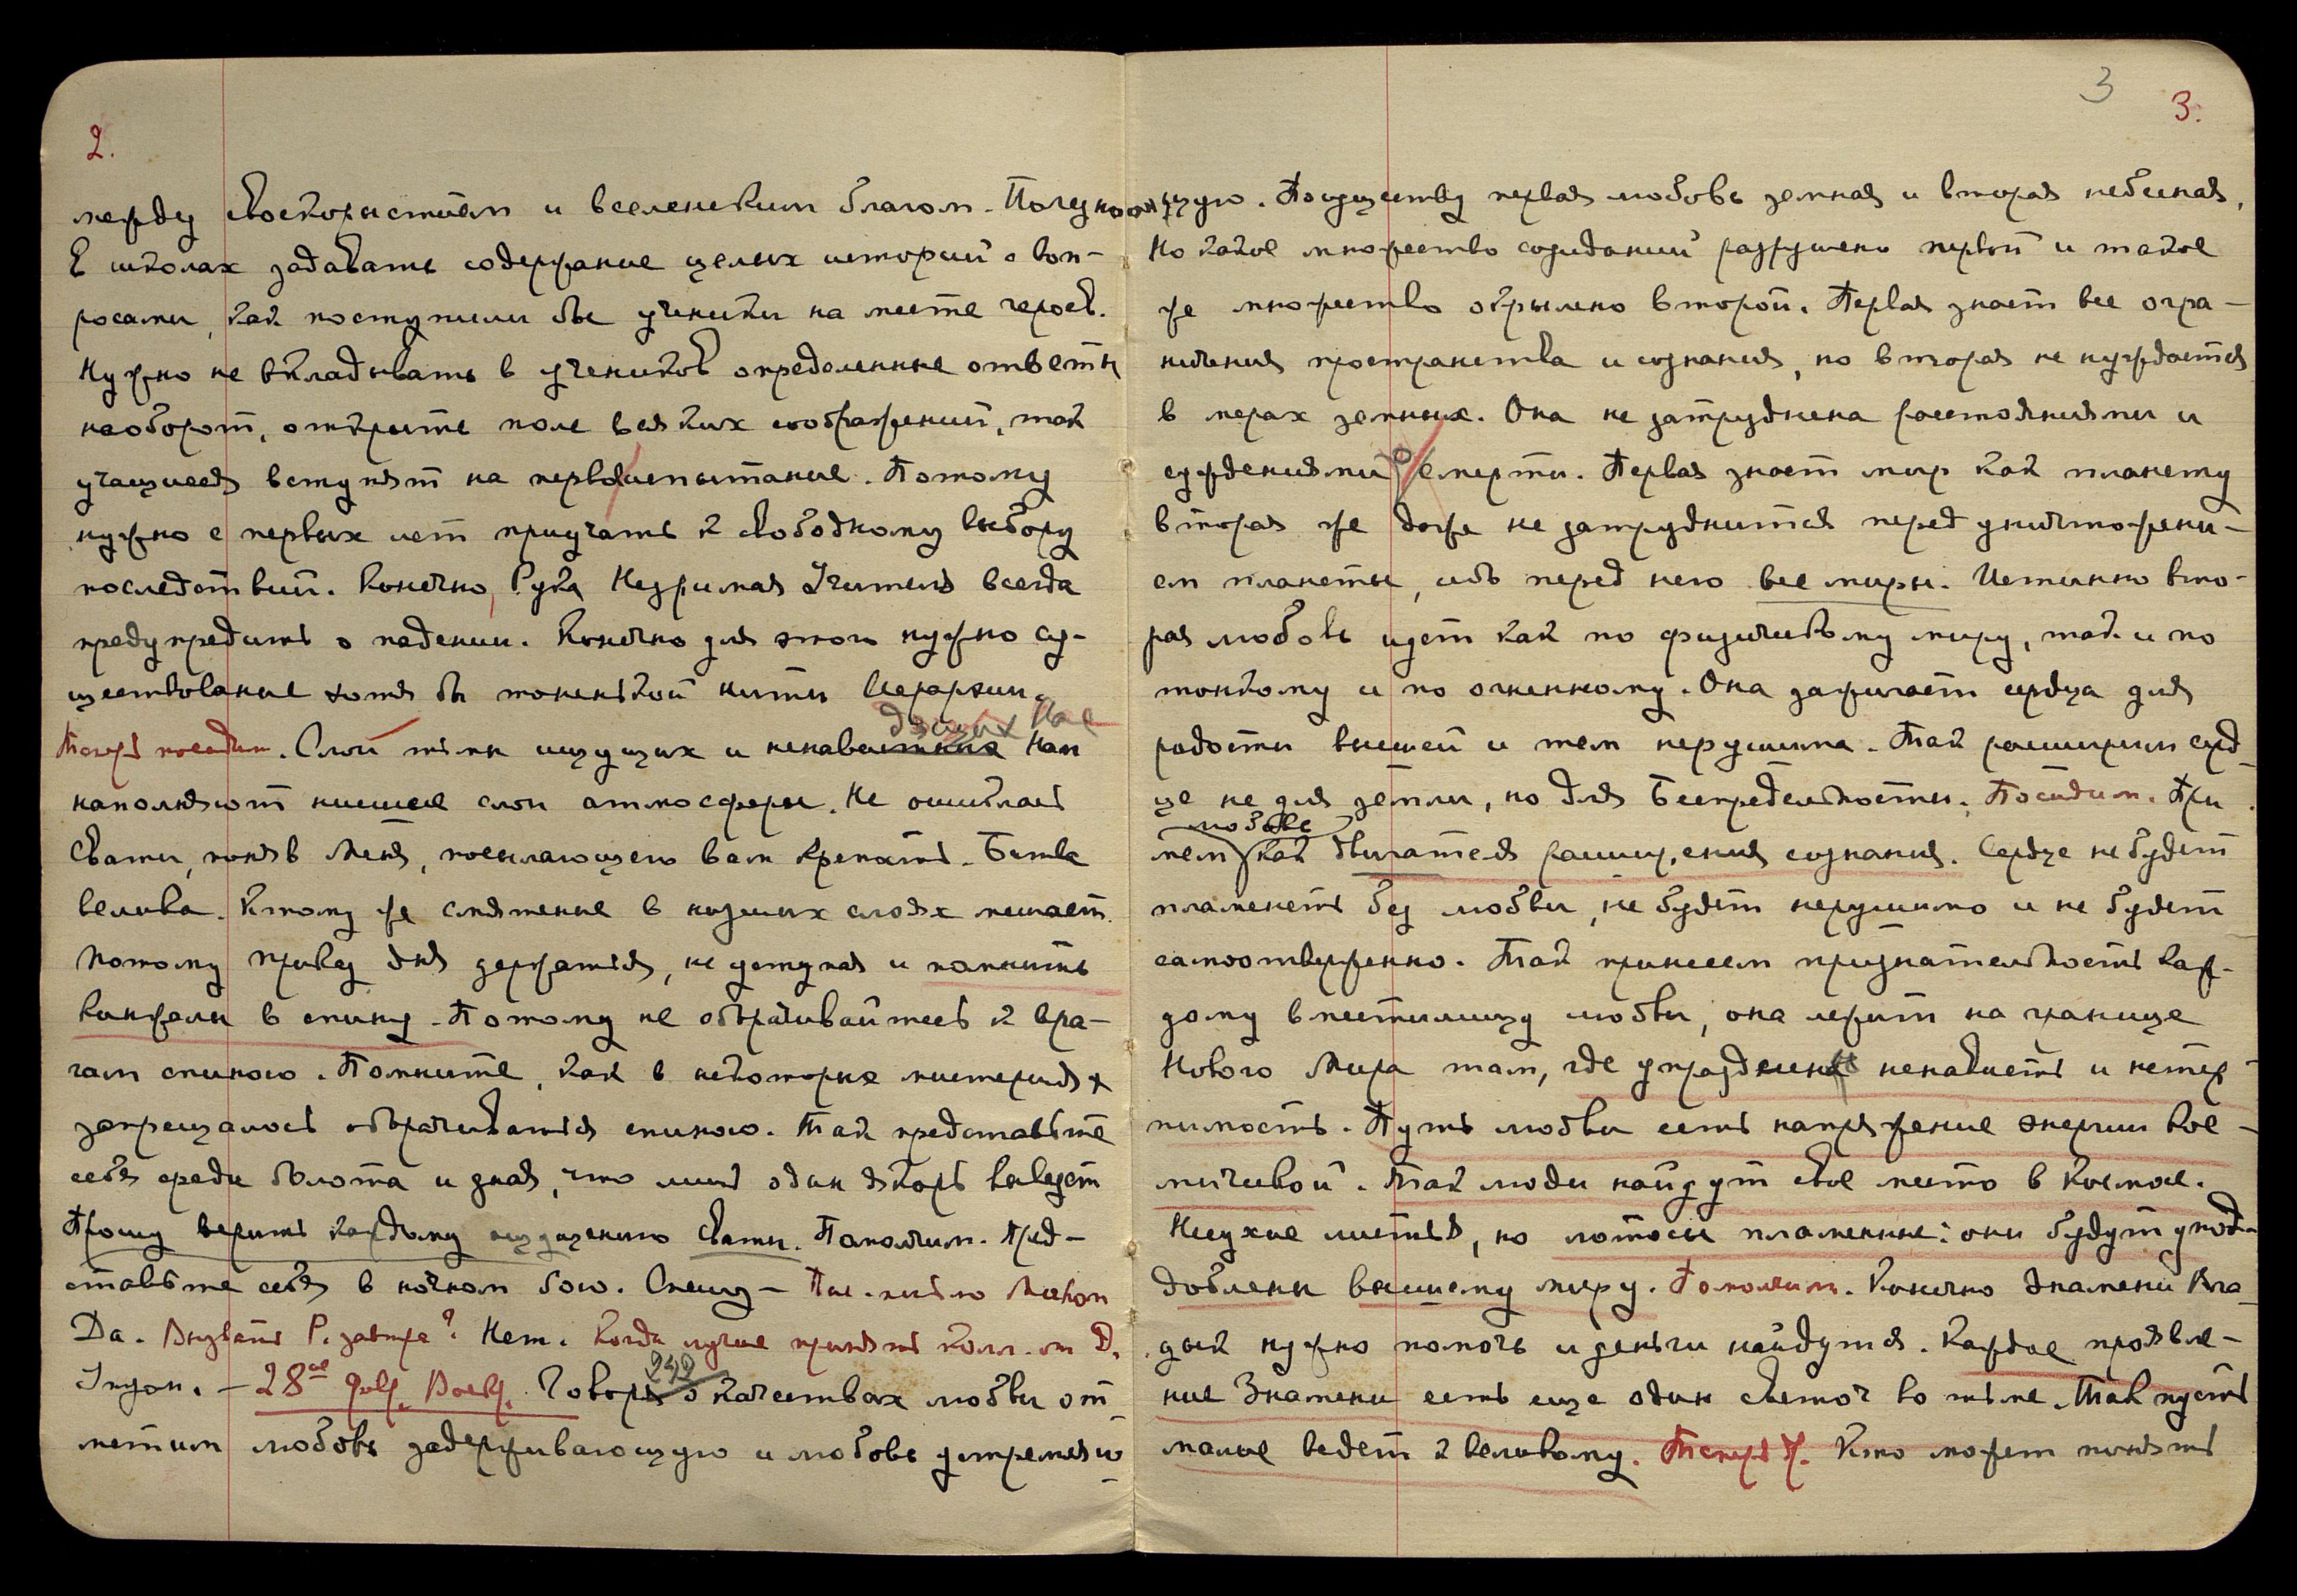 2.
между своекорыстием и вселенским благом. Полезно
в школах задавать содержание целых историй с воп-
росами, как поступили бы ученики на месте героев.
Нужно не вкладывать в учеников определенные ответы
наоборот, открыть поле всяких соображений, так
учащиеся вступят на первоиспытание. Потому
нужно с первых лет приучать к свободному выбору
последствий. Конечно, Рука Незримая Учителя всегда
предупредить о падении. Конечно для этого нужно су-
ществование хотя бы тоненькой нити Иерархии.
дящих Нас
Теперь посидим. Слои тьмы ищущих и ненавистных Нам
наполняют нисшие слои атмосферы. Не ошиблась
Свати, поняв Меня, посылающего вам крепость. Битва
велика. К тому же смятение в низших слоях мешает.
Потому призыв дня держаться, не уступая и помнить
кинжалы в спину. Потому не оборачивайтесь к вра-
гам спиною. Помните, как в некоторых мистериях
запрещалось оборачиваться спиною. Так представьте
себя среди болота и зная, что лишь один якорь вывезет
Прошу верить каждому ощущению Свати. Помолчим. Пред-
ставьте себя в ночном бою. Спешу —
Да. Вызвать Р. завтра? Нет. Когда лучше принять колл. от D.
— 28ое Февр. Воскр. 242 Говоря о качествах любви от
метим любовь задерживающую и любовь устремляю
3
3.
щую. По существу первая любовь земная и вторая небесная.
Но какое множество созиданий разрушено первой и такое
же множество окрылено второй. Первая знает все огра-
ничения пространства и сознания, но вторая не нуждается
в мерах земных. Она не затруднена расстояниями и
суждениями о смерти. Первая знает мир как планету
вторая же даже не затруднится перед уничтожени-
ем планеты, ибо перед нею все миры. Истинно вто-
рая любовь идет как по физическому миру, так и по
тонкому и по огненному. Она зажигает сердца для
радости высшей и тем нерушима. Так расширим серд
це не для земли, но для Беспредельности. Посидим. При
любовь
мем как двигателя расширения сознания. Сердце не будет
пламенеть без любви, не будет нерушимо и не будет
самоотверженно. Так принесем признательность каж-
дому вместилищу любви, она лежит на границе
Нового Мира там, где упразднены ненависть и нетер-
пимость. Путь любви есть напряжение энергии кос-
мической. Так люди найдут свое место в Космосе.
Несухие листья, но лотосы пламенные: они будут упод-
доблены высшему миру. Помолчим. Конечно Знамени Вла-
дык нужно помочь и деньги найдутся. Каждое проявле-
ние Знамени есть еще один светоч во тьме. Так пусть
малые ведет к великому. Теперь Ч. Кто может понять